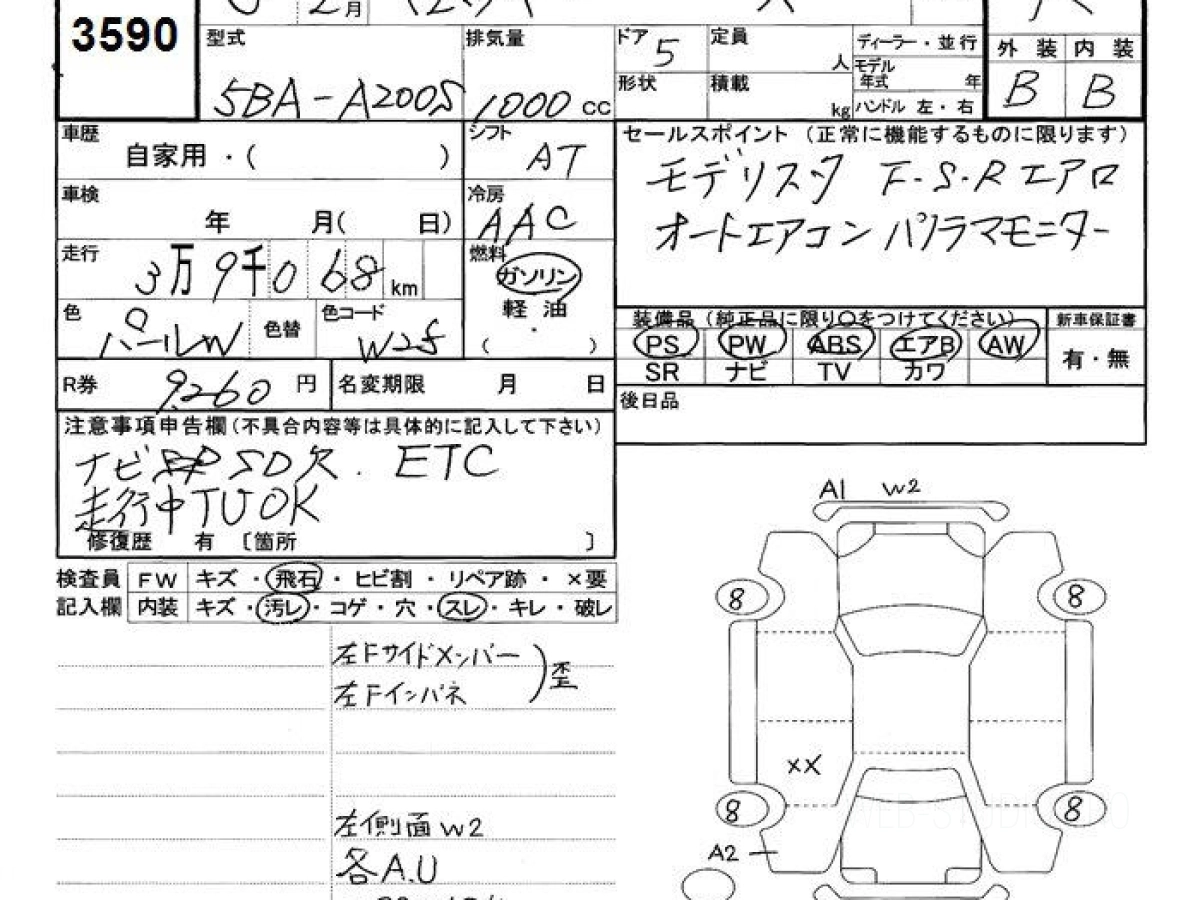 3590
月
型式
5BA-A200S
排気量
1000 cc
ドア 5
定員
人
形状
積載
kg
ディーラー・並行
モデル年式 年
ハンドル 左・右
外装 内装
B B
車歴
自家用・( )
シフト
AT
車検
年 月( 日)
冷房
AAC
走行
3万9千068 km
燃料
ガソリン
軽油
( )
色
パールW
色替
色コード
W25
R券 9,260 円
名変期限 月 日
セールスポイント (正常に機能するものに限ります)
モデリスタ F・S・Rエアロ
オートエアコン パノラマモニター
装備品 (純正品に限り〇をつけてください)
新車保証書
PS PW ABS エアB AW
SR ナビ TV カワ
有・無
後日品
注意事項申告欄(不具合内容等は具体的に記入して下さい)
ナビ SD欠. ETC
走行中TVOK
修復歴 有 〔箇所 〕
検査員 FW キズ・飛石・ヒビ割・リペア跡・×要
記入欄 内装 キズ・汚レ・コゲ・穴・スレ・キレ・破レ
左Fサイドメンバー
左Fインパネ
)歪
左側面W2
各A.U
A1 W2
8 8
XX
8 8
A2